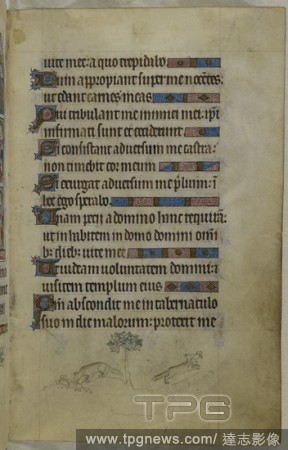 uite mee: a quo trepidabo.
Dum appropiant super me nocētes:
ut edant carnes meas
Qui tribulant me inimici mei: ipi
infirmati sunt et ceciderunt.
Si consistant adversum me castra:
non timebit cor meum
Si exurgat adversum me p̄lium: ī
hoc ego sperabo.
Unam petij a domino hanc requirā:
ut inhabitem in domo domini omī
b; dieb; uite mee
Ut uideam voluntatem domini: 
uisitem templum eius
Qm̄ abscondit me in tabernaculo
suo in die malorum: protexit me
TPG
www.tpgnews.com/ 達志影像